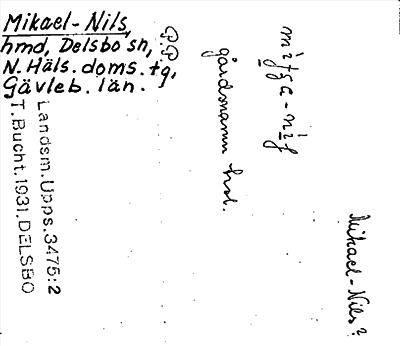 Mikael-Nils,
hmd, Delsbo sn,
N. Häls. doms. tg,
Gävleb. län.
Landsm. Upps. 3475:2
T. Bucht. 1931. DELSBO
P.P.
gårdsnamn
Mikael-Nils?